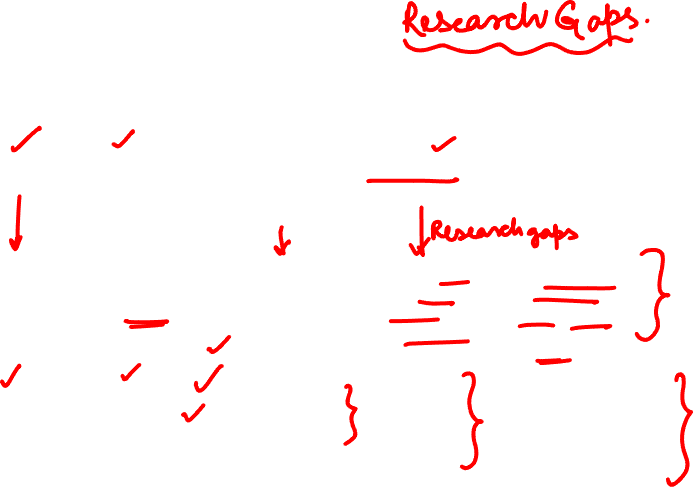 Research Gaps.
Research gaps